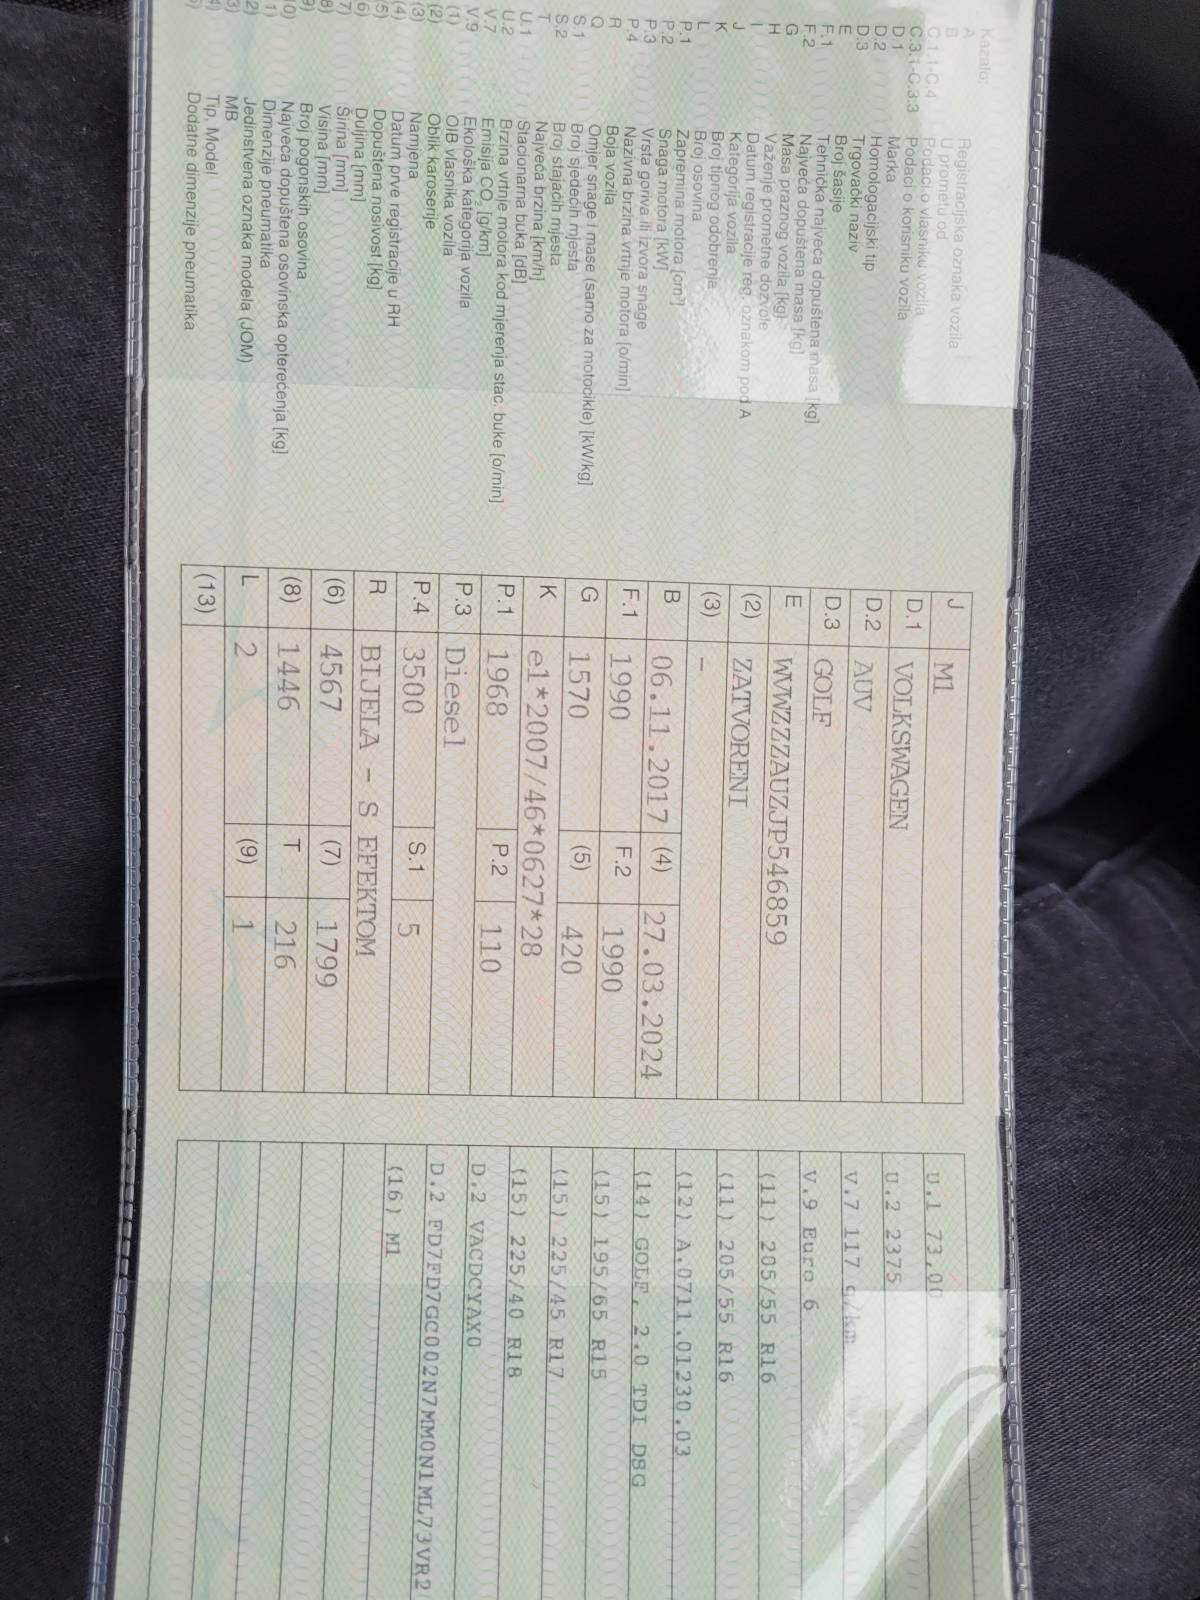 Kazalo:
A Registracijska oznaka vozila
B U prometu od
C.1.1-C.4 Podaci o vlasniku vozila
C.3.1-C.3.3 Podaci o korisniku vozila
D.1 Marka
D.2 Homologacijski tip
D.3 Trgovački naziv
E Broj šasije
F.1 Tehnička najveća dopuštena masa [kg]
F.2 Najveća dopuštena masa [kg]
G Masa praznog vozila [kg]
H Važenje prometne dozvole
I Datum registracije reg. oznakom pod A
J Kategorija vozila
K Broj tipnog odobrenja
L Broj osovina
P.1 Zapremina motora [cm³]
P.2 Snaga motora [kW]
P.3 Vrsta goriva ili izvora snage
P.4 Nazivna brzina vrtnje motora [o/min]
R Boja vozila
Q Omjer snage i mase (samo za motocikle) [kW/kg]
S.1 Broj sjedećih mjesta
S.2 Broj stajaćih mjesta
T Najveća brzina [km/h]
U.1 Stacionarna buka [dB]
U.2 Brzina vrtnje motora kod mjerenja stac. buke [o/min]
V.7 Emisija CO₂ [g/km]
V.9 Ekološka kategorija vozila
(1) OIB vlasnika vozila
(2) Oblik karoserije
(3) Namjena
(4) Datum prve registracije u RH
(5) Dopuštena nosivost [kg]
6) Duljina [mm]
7) Širina [mm]
8) Visina [mm]
9) Broj pogonskih osovina
0) Najveća dopuštena osovinska opterećenja [kg]
1) Dimenzije pneumatika
2) Jedinstvena oznaka modela (JOM)
3) MB
4) Tip, Model
5) Dodatne dimenzije pneumatika
J M1
D.1 VOLKSWAGEN
D.2 AUV
D.3 GOLF
E WVWZZZAUZJP546859
(2) ZATVORENI
(3) -
B 06.11.2017 (4) 27.03.2024
F.1 1990 F.2 1990
G 1570 (5) 420
K e1*2007/46*0627*28
P.1 1968 P.2 110
P.3 Diesel
P.4 3500 S.1 5
R BIJELA - S EFEKTOM
(6) 4567 (7) 1799
(8) 1446 T 216
L 2 (9) 1
(13)
U.1 73,00
U.2 2375
V.7 117 g/km
V.9 Euro 6
(11) 205/55 R16
(11) 205/55 R16
(12) A.0711.01230.03
(14) GOLF, 2.0 TDI DSG
(15) 195/65 R15
(15) 225/45 R17
(15) 225/40 R18
D.2 VACDCYAX0
D.2 FD7FD7GC002N7MM0N1ML73VR2
(16) M1